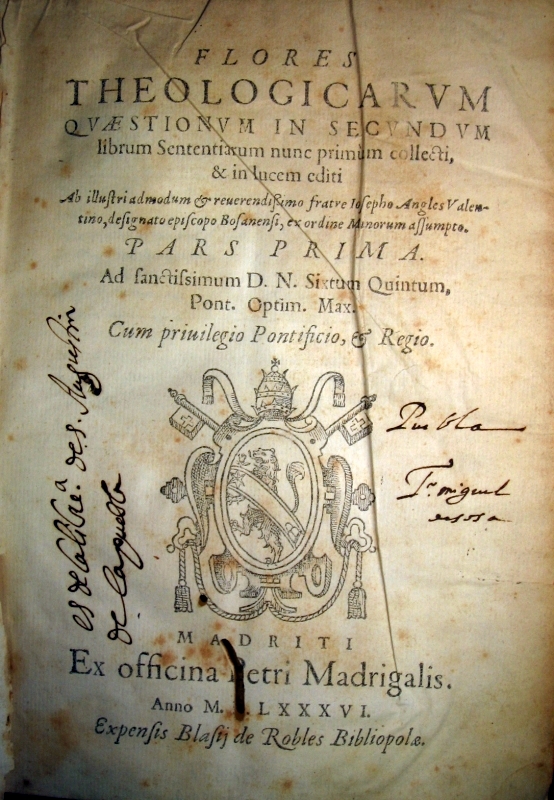 FLORES
THEOLOGICARVM
QVÆSTIONVM IN SECVNDVM
librum Sententiarum nunc primùm collecti,
& in lucem editi
Ab illuſtri admodum & reuerendißimo fratre Ioſepho Angles Valen-
tino, deſignato epiſcopo Boſanenſi, ex ordine Minorum aſſumpto.
PARS PRIMA.
Ad ſanctiſſimum D. N. Sixtum Quintum,
Pont. Optim. Max.
Cum priuilegio Pontificio, & Regio.
es de la libreª. de s. Augustin
de la puebla
Puebla
Fr. miguel
de sosa
MADRITI
Ex officina Petri Madrigalis.
Anno M. LXXXVI.
Expenſis Blaſij de Robles Bibliopolæ.